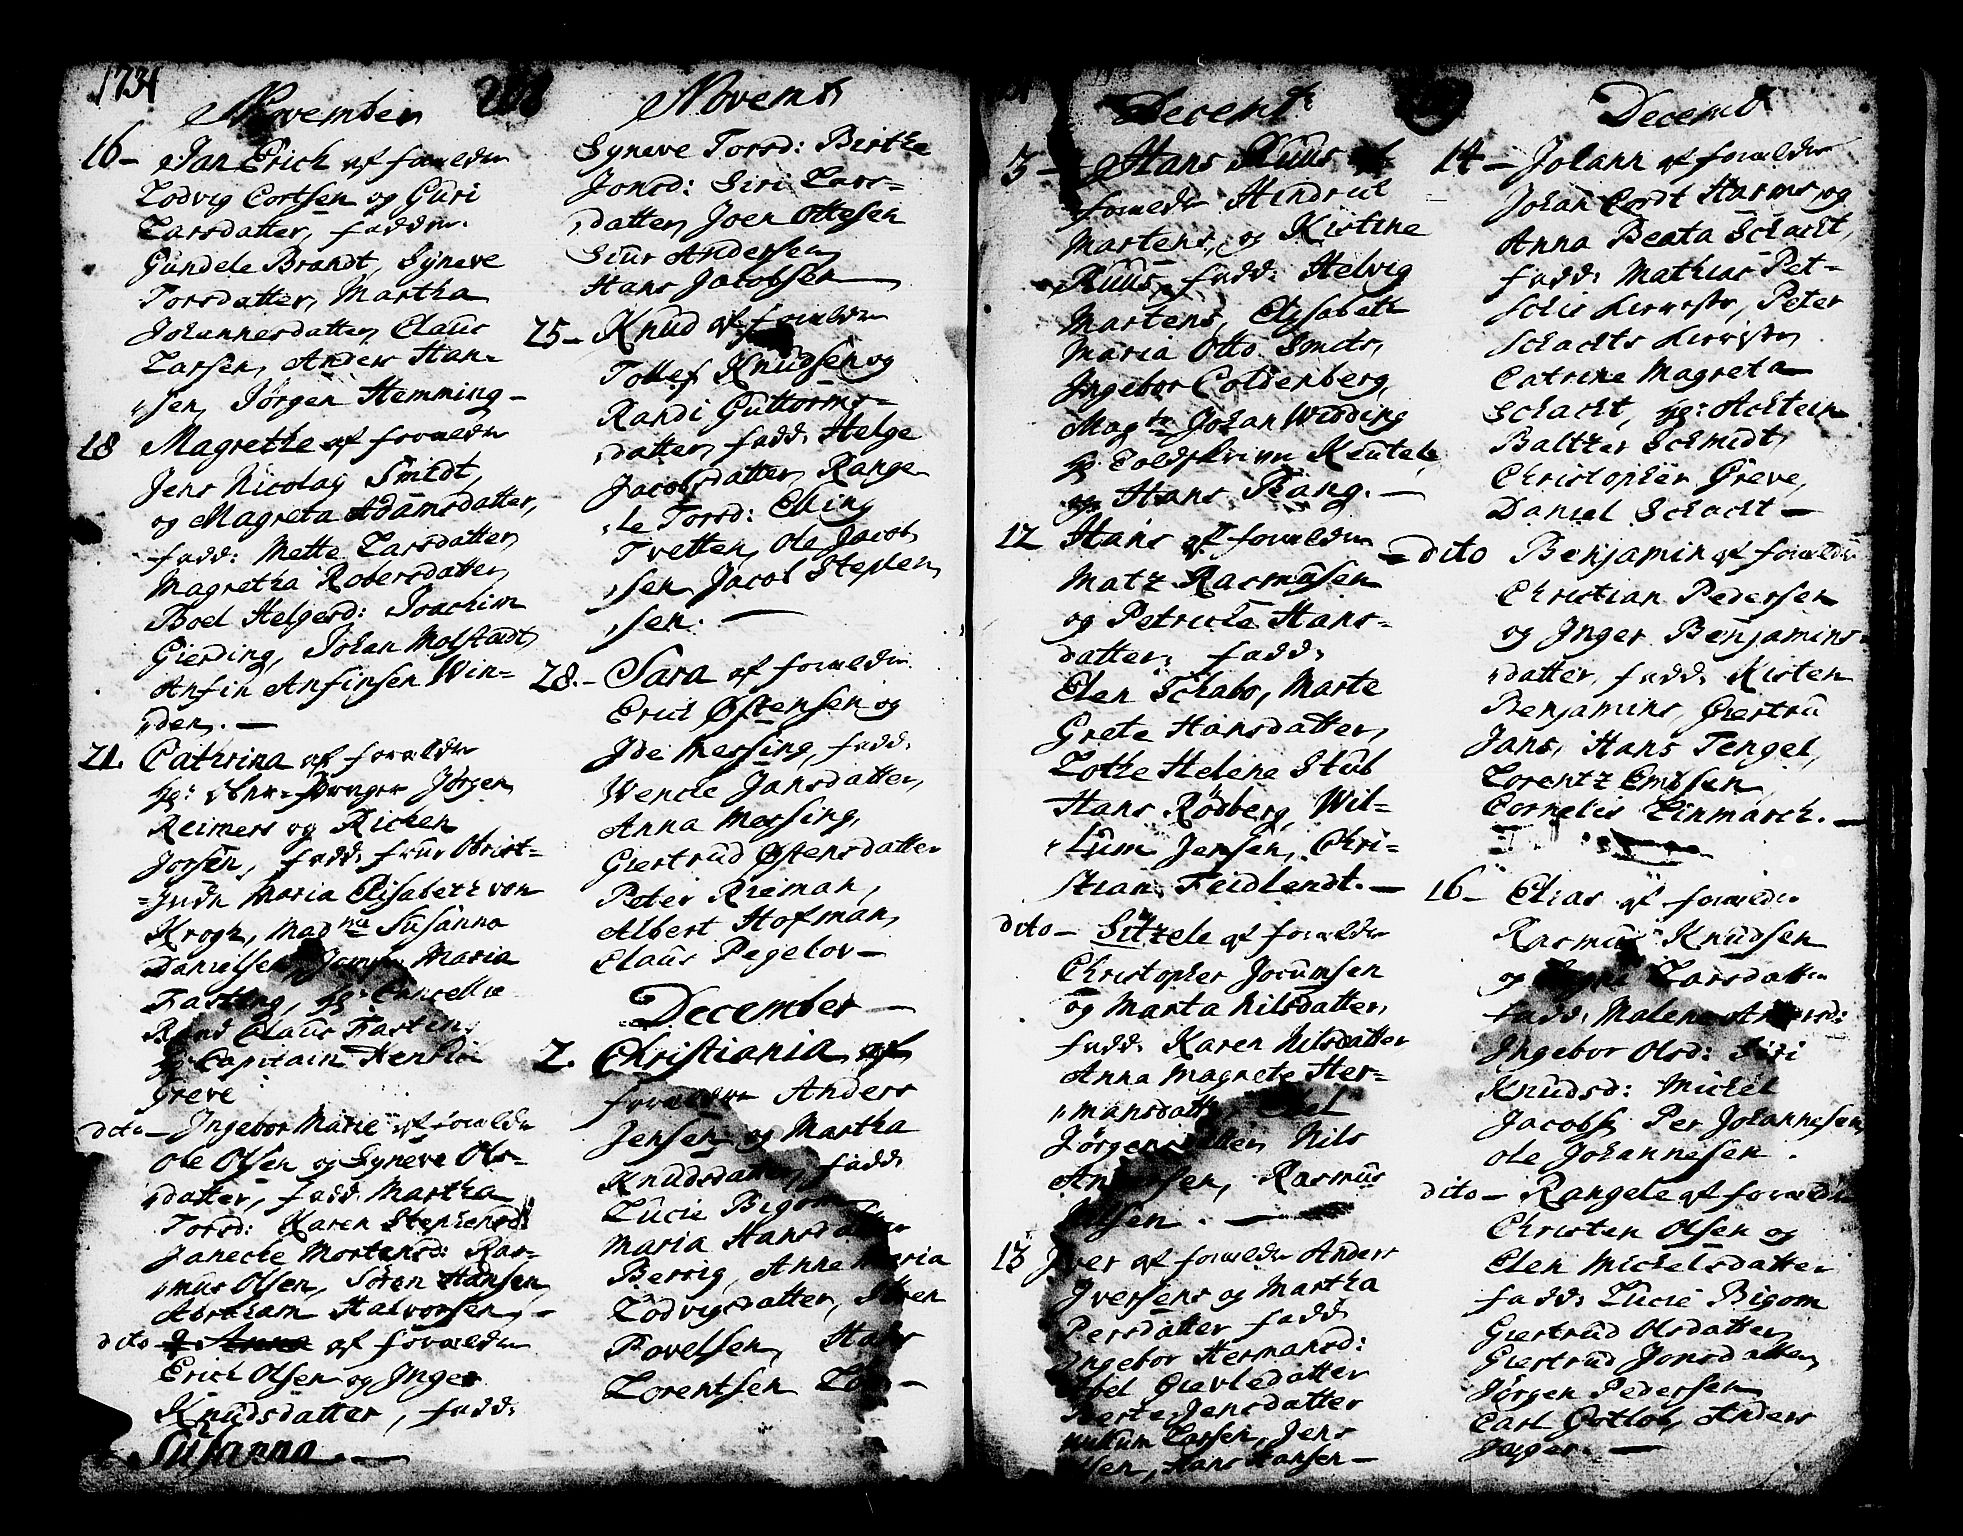 1731
November
16 - Jan Erich af forældre
Lodvig Cortsen og Guri
Larsdatter, faddre.
Gundele Brandt, Syneve
Torsdatter, Martha
Johannesdatter, Claus
Larsen, Anders Han-
sen, Jørgen Hemming-
18 Magrethe af forældre
Jens Nicolay Smidt,
og Magreta Adamsdatter,
fadd: Mette Larsdatter,
Magretha Robersdatter,
Boel Helgesd: Joachim
Gierding, Johan Molstadt,
Anfin Anfinsen Win-
den. -
21. Cathrina af forældre
hr: Jørgen
Reimers og Richen
Jorsen, fadd: frue Obrist-
Maria Elisabeth von
Krogh, Mad^me Susanna
Danielsen, Maria
Fasting, hr: Cancellie
Raad Claus Fasting
hr Capitain Henrich
Greve
dito - Ingebor Marie af forældre
Ole Olsen og Syneve Ols-
datter, fadd. Martha
Torsd: Karen Stephensd:
Janeche Mortensd: Ras-
mus Olsen, Søren Hansen,
Abraham Halvorsen, -
dito - Anna af forældre
Erich Olsen og Inger
Knudsdatter, fadd:
Susanna. -
Novemb
Syneve Torsd: Birthe
Jonsd: Siri Lars-
datter, Joen Ottesen
Siur Andersen,
Hans Jacobsen
25 - Knud af forældre
Tollef Knudsen og
Randi Guttorms-
datter, fadd: Helge
Jacobsdatter, Range-
le Torsd: Elling
Tvetten, Ole Jacob
sen, Jacob Stephen
sen. -
28. - Sara af forældre
Erich Østensen og
Ide Messing, fadd:
Wencke Jansdatter,
Anna Messing,
Giertrud Østensdatter
Peter Rieman,
Albert Hofman,
Claus Pegelov -
December -
2. Christiania af
forældre Anders
Jensen og Martha
Knudsdatter, fadd:
Lucie Bigom
Maria Hansdatter
Berrig, Anne Maria
Lodvigsdatter,
Povelsen, Hans
Lorentsen
Decemb:
3 - Hans Kuus af
forældre Hindrich
Martens, og Kistine
Kuus, fadd: Helvig
Martens, Elisabeth
Maria Otto Smits,
Ingebor Coldenberg,
Mag^r Johan Widding
hr Toldskriver
og Hans Rang. -
12 Hans af forældre
Matz Rasmusen
og Petriche Hans-
datter, fadd:
Elen Schabo, Marte
Grete Hansdatter,
Lothe Helene Stub
Hans Rødberg, Wil-
lum Jensen, Chri-
stian Feidlendt. -
dito - Sitzele af forældre
Christopher Jocumsen
og Marta Nilsdatter,
fadd: Karen Nilsdatter
Anna Magrete Her-
mansdatter,
Jørgens Nils
Andersen, Rasmus
. -
13 Iver af forældre Anders
Iversens og Martha
Persdatter fadd:
Ingebor Hermansd:
Gievledatter
Berte Jensdatter
Larsen, Jens
Hans Hansen -
Decemb
14 - Johann af forældre
Johan Cordt Harms, og
Anna Beata Schacht,
fadd: Mathias Pet-
Peter
Schachts
Catrine Magreta
Schacht, hr: Achtein
Baltzer Schmidt,
Christopher Greve,
Daniel Schacht -
dito Benjamin af forældre
Christian Pedersen
og Inger Benjamins-
datter, fadd: Kisten
Benjamins, Giertru
Jans, Hans Tengel,
Lorentz Embsen
Cornelis Einmarck. -
16 - Elias af forældre
Rasmus Knudsen
og Larsdatter
fadd: Malene
Ingebor Olsd: Siri
Knudsd: Michel
Jacobs, Per Johannesen,
Ole Johannesen .
dito - Rangele af forældre
Christen Olsen og
Elen Michelsdatter
fadd: Lucie Bigom
Giertrud Olsdatter,
Giertrud Jonsdatter,
Jørgen Pedersen
Carl Gotlob, Anders
Jæger. -